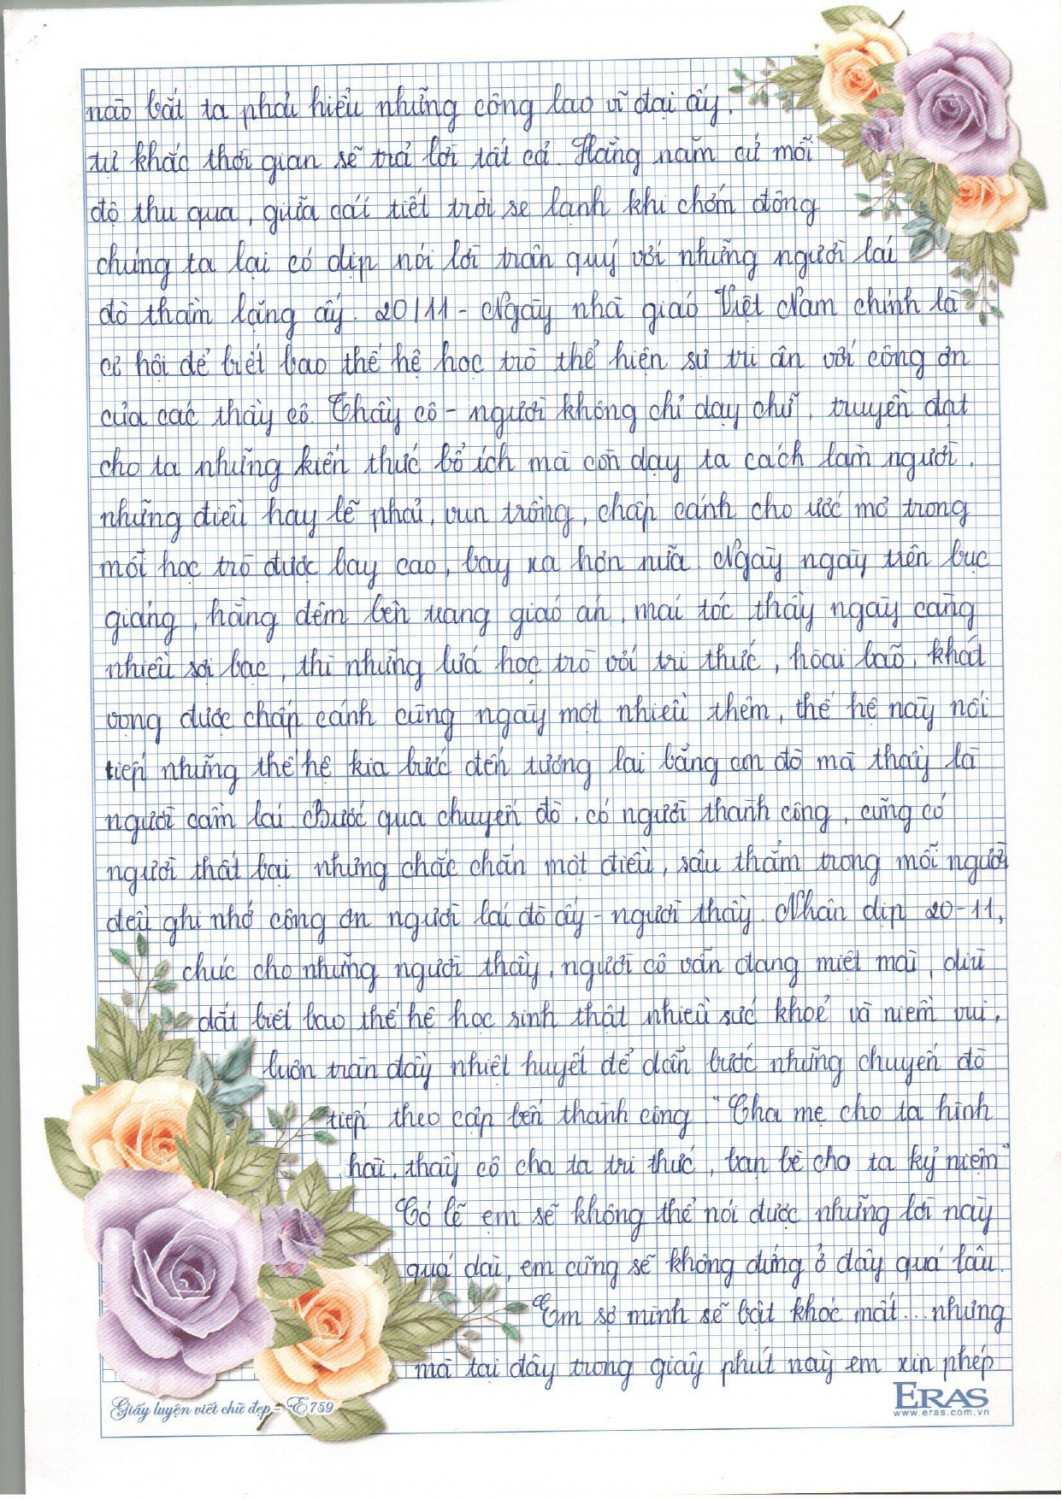 nào bắt ta phải hiểu những công lao vĩ đại ấy,
tự khắc thời gian sẽ trả lời tất cả. Hằng năm cứ mỗi
độ thu qua, giữa cái tiết trời se lạnh khi chớm đông
chúng ta lại có dịp nói lời trân quý với những người lái
đò thầm lặng ấy. 20/11 - Ngày nhà giáo Việt Nam chính là
cơ hội để biết bao thế hệ học trò thể hiện sự tri ân với công ơn
của các thầy cô. Thầy cô - người không chỉ dạy chữ, truyền đạt
cho ta những kiến thức bổ ích mà còn dạy ta cách làm người.
những điều hay lẽ phải, vun trồng, chấp cánh cho ước mơ trong
mỗi học trò được bay cao, bay xa hơn nữa. Ngày ngày trên bục
giảng, hằng đêm bên trang giáo án, mái tóc thầy ngày càng
nhiều sợi bạc, thì những lứa học trò với tri thức, hoài bão, khát
vọng được chấp cánh cũng ngày một nhiều thêm, thế hệ này nối
tiếp những thế hệ kia bước đến tương lai bằng con đò mà thầy là
người cầm lái. Bước qua chuyến đò, có người thành công, cũng có
người thất bại nhưng chắc chắn một điều, sâu thẳm trong mỗi người
đều ghi nhớ công ơn người lái đò ấy - người thầy. Nhân dịp 20-11,
chúc cho những người thầy, người cô vẫn đang miệt mài, dìu
dắt biết bao thế hệ học sinh thật nhiều sức khoẻ và niềm vui,
luôn tràn đầy nhiệt huyết để dẫn bước những chuyến đò
tiếp theo cập bến thành công. "Cha mẹ cho ta hình
hài, thầy cô cha ta tri thức, bạn bè cho ta kỷ niệm"
Có lẽ em sẽ không thể nói được những lời này
quá dài, em cũng sẽ không đứng ở đây quá lâu.
Em sợ mình sẽ bật khóc mất... nhưng
mà tại đây trong giây phút này em xin phép
Giấy luyện viết chữ đẹp - E759
ERAS
www.eras.com.vn